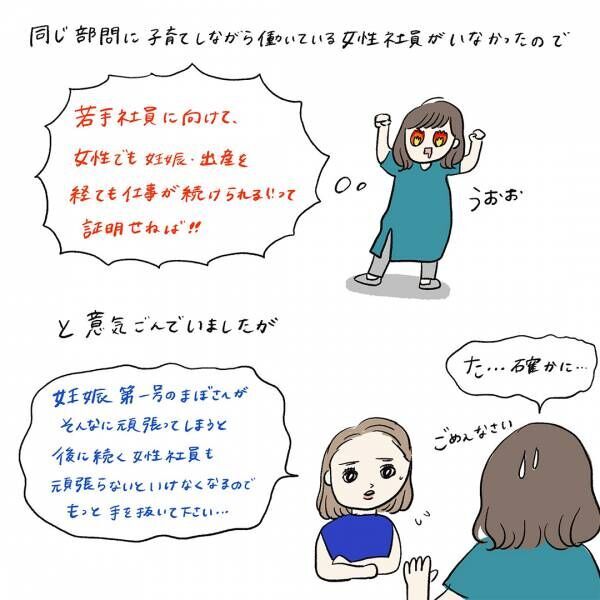 同じ部門に子育てしながら働いている女性社員がいなかったので
若手社員に向けて、
女性でも妊娠・出産を
経ても仕事が続けられる!って
証明せねば!!
うおお
と意気ごんでいましたが
た…確かに…
妊娠第一号のまぼさんが
そんなに頑張ってしまうと
後に続く女性社員も
頑張らないといけなくなるので
もっと手を抜いて下さい…
ごめんなさい